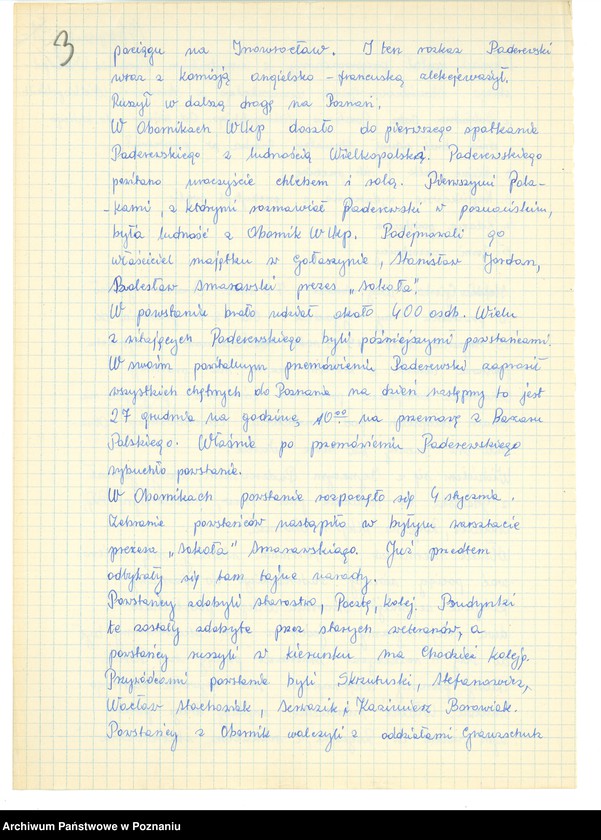 3
pociągu na Inowrocław. I ten rozkaz Paderewski
wraz z komisją angielsko-francuską zlekceważył.
Ruszył w dalszą drogę na Poznań.
W Obornikach Wlkp doszło do pierwszego spotkania
Paderewskiego z ludnością Wielkopolską. Paderewskiego
powitano uroczyście chlebem i solą. Pierwszymi Pola-
-kami, z którymi rozmawiał Paderewski w poznańskim,
była ludność z Obornik Wlkp. Podejmowali go
właściciel majątku w Gołaszynie, Stanisław Jordan,
Bolesław Smarowski prezes „Sokoła".
W powstaniu brało udział około 400 osób. Wielu
z witających Paderewskiego byli późniejszymi powstańcami.
W swoim powitalnym przemówieniu Paderewski zaprosił
wszystkich chętnych do Poznania na dzień następny to jest
27 grudnia na godzinę 10⁰⁰ na przemowę z Bazaru
Polskiego. Właśnie po przemówieniu Paderewskiego
wybuchło powstanie.
W Obornikach powstanie rozpoczęło się 4 stycznia.
Zebranie powstańców nastąpiło w byłym warsztacie
prezesa „Sokoła" Smarowskiego. Już przedtem
odbywały się tam tajne narady.
Powstańcy zdobyli starostwo, Pocztę, kolej. Budynki
te zostały zdobyte przez starych weteranów, a
powstańcy ruszyli w kierunku na Chodzież koleją.
Przywódcami powstania byli Skrzetuski, Stefanowicz,
Wacław Stachowiak, i Kazimierz Borowiak.
Powstańcy z Obornik walczyli z oddziałami Grenzschutz
Archiwum Państwowe w Poznaniu